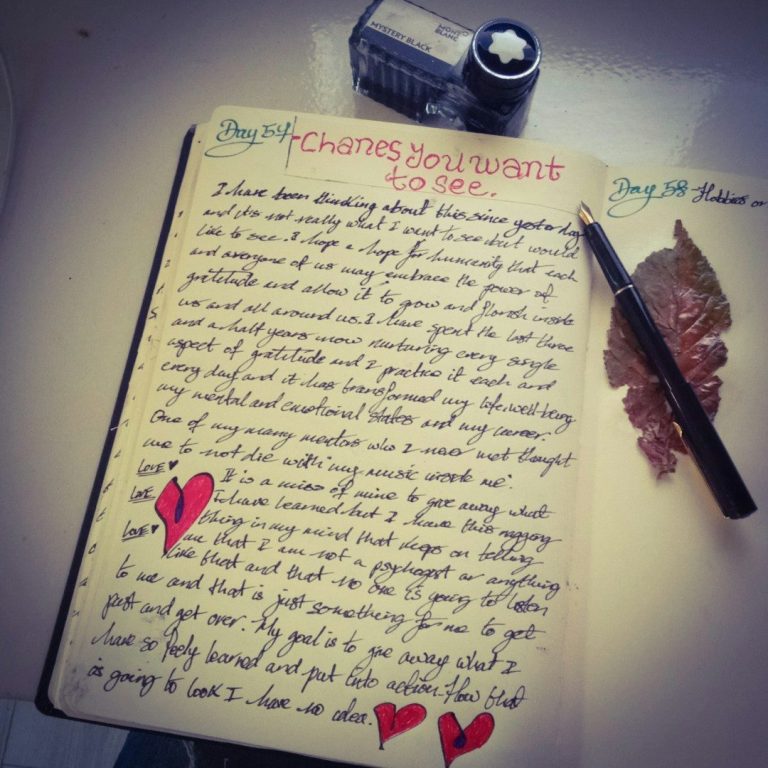 MONT
BLANC
MYSTERY BLACK
Day 54
-Chanes you want
to see.
I have been thinking about this since yesterday
and it's not really what I want to see but would
like to see. I hope a hope for humanity that each
and everyone of us may embrace the power of
gratitude and allow it to grow and florish inside
us and all around us. I have spent the last three
and a half years now nurturing every single
aspect of gratitude and I practice it each and
every day and it has transformed my life, well-being
my mental and emotional states and my career.
One of my many mentors who I never met thought
me to not die with my music inside me".
LOVE ♥
LOVE
LOVE ♥
It is a miss of mine to give away what
I have learned but I have this nagging
thing in my mind that keeps on telling
me that I am not a psychogist or anything
like that and that no one is going to listen
to me and that is just something for me to get
past and get over. My goal is to give away what I
have so freely learned and put into action. How that
is going to look I have no idea.
Day 58 - Hobbies or